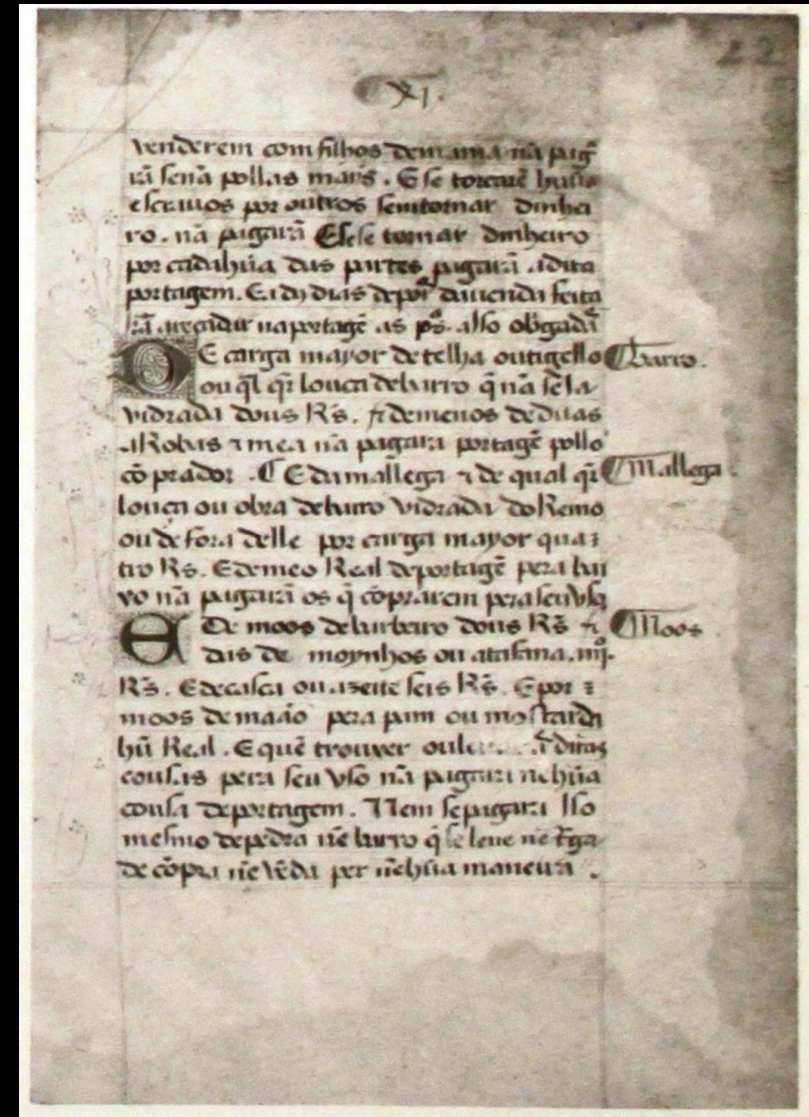 22
XI.
venderem com filhos de mama nã pag̃
rã senã pollas mais . E se trocarẽ hũus
escrauos por outros sem tornar dinhei
ro . nã pagarã E se se tornar dinheiro
por cada hũa das partes pagarã a dita
portagem . E a dous dias depois da uenda feita
arecadar na portagẽ as ps̃ . a isso obrigada
DE carga mayor de telha ou tigello Barro .
ou ql̃ qr̃ louça de barro q̃ nã seia
vidrada dous Rs̃ . E de menos de duas
aRobas ⁊ mea nã pagara portagẽ pollo
cõprador . E da mallega ⁊ de qual qr̃ Mallega .
louça ou obra de barro vidrada do Reino
ou de fora delle por carga mayor qua
tro Rs . E de meo Real de portagẽ pera bai
xo nã pagarã os q̃ cõprarem pera seu vso
E De moos de barbeiro dous Rs̃ E Moos
das de moynhos ou atafona . iiijº.
Rs̃ . E de casca ou azeite seis Rs̃ . E por
moos de maão pera pam ou mostarda
hũ Real . E quẽ trouuer ou leuar ditas
cousas pera seu vso nã pagara nehũa
cousa de portagem . Nem se pagara Isso
mesmo de pedra nẽ barro q̃ se leue nẽ trãga
de cõpra nẽ vẽda per nẽhũa maneira .